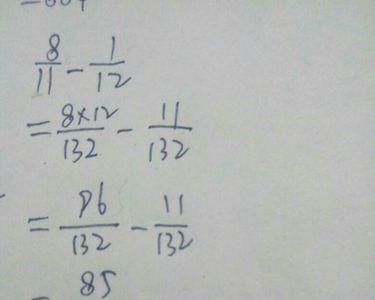 8/11 - 1/12
= 8×12/132 - 11/132
= 96/132 - 11/132
= 85